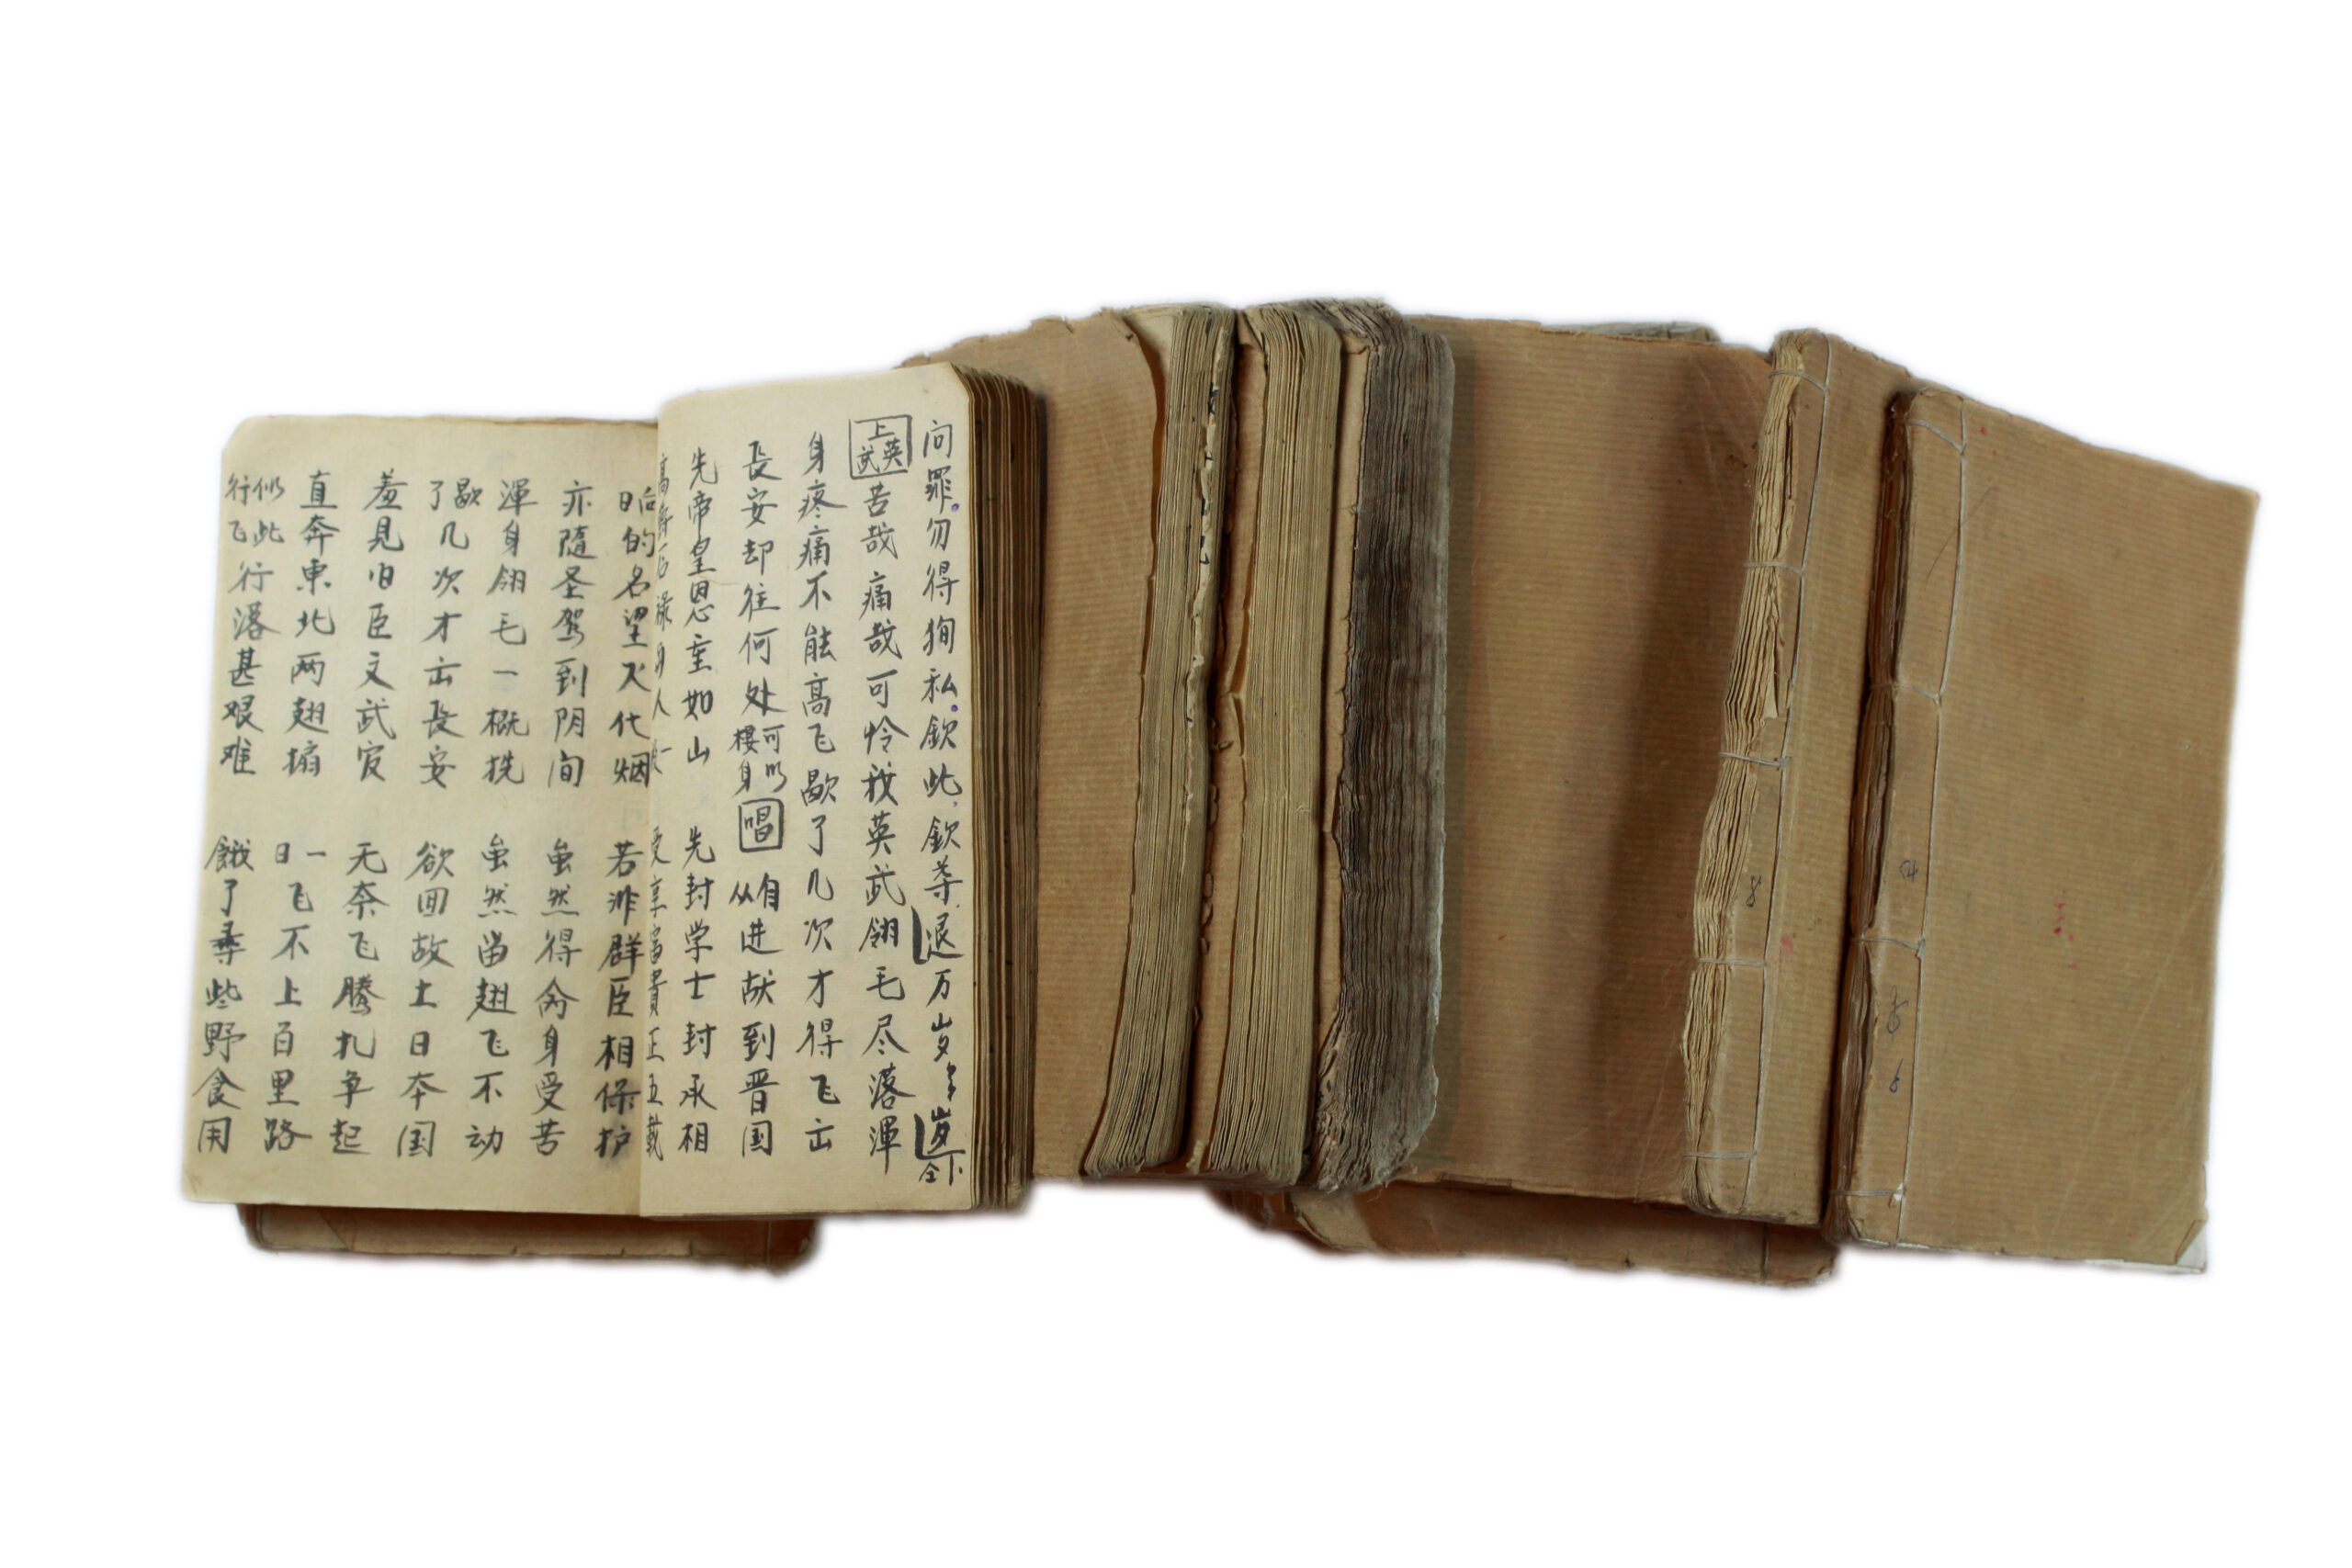 问罪。勿得狥私。钦此,钦尊退万岁々岁仝下
上英武 苦哉痛哉可怜我英武翎毛尽落渾
身疼痛不能高飞歇了几次才得飞出
長安却往何处可以楼身唱自从进献到晋国
先帝皇恩重如山 先封学士封承相
高 禄 人 受享富貴正五載
后日的名望火化烟 若非群臣相保护
亦隨圣驾到阴间 虽然得禽身受苦
渾身翎毛一概挩 虽然出翅飞不动
歇了几次才出長安 欲回故土日本国
羞見旧臣文武官 无奈飞腾扎争起
直奔東北两翅搧 一日飞不上百里路
似此行飞行落甚艰难 餓了尋些野食用
8
4
5
6